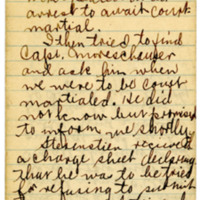 arrest to await court
martial.
I then tried to find
Capt. Moreschauser
and ask him when
we were to be court
martialed. He did
not know but promised
to inform me shortly.
received
a charge sheet declaring
that he was to be tried
for refusing to submit